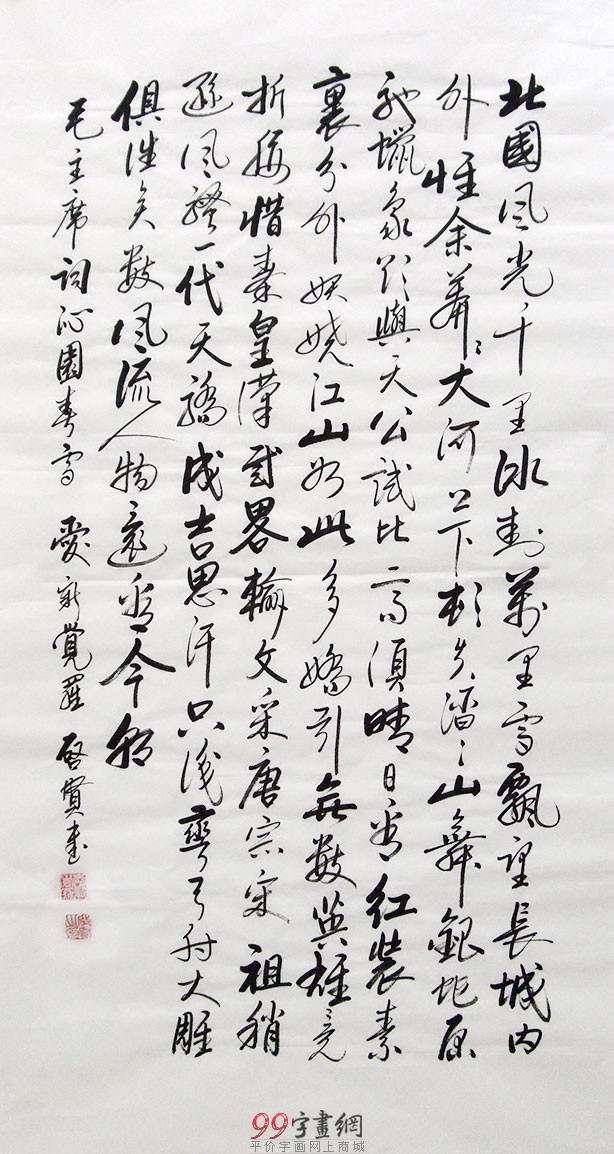 北國風光千里冰封萬里雪飄望長城内
外惟余莽々大河上下頓失滔々山舞銀蛇原
馳蠟象欲與天公試比高須晴日看紅裝素
裹分外妖嬈江山如此多嬌引無數英雄竞
折腰惜秦皇漢武畧輸文采唐宗宋祖稍
遜風騷一代天驕成吉思汗只識彎弓射大雕
俱往矣數風流人物還看今朝
毛主席詞沁園春雪 愛新覺羅 啓賢書
99字畫網
平价字画网上商城